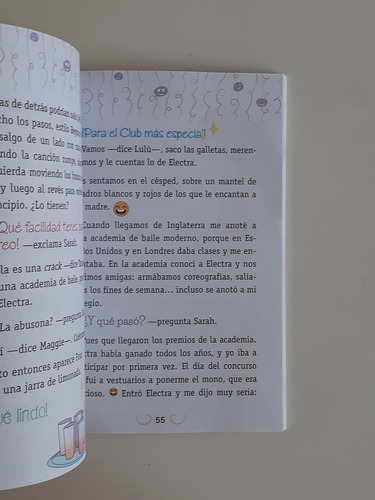 as de detrás podrían
cho los pasos, estilo
salgo de un lado con
ndo la canción rompe,
uierda moviendo los
y luego al revés para
ncipio. ¿Lo tienen?
Qué facilidad tienes
reo! —exclama Sarah.
la es una crack —dice
una academia de baile,
Electra.
La abusona? —pregunta
í —dice Maggie—.
to entonces aparece
una jarra de limonada.
ué lindo!
¡Para el Club más especial!
Vamos —dice Lulú—, saco las galletas, meren-
mos y le cuentas lo de Electra.
s sentamos en el césped, sobre un mantel de
adros blancos y rojos de los que le encantan a
madre.
Cuando llegamos de Inglaterra me anoté a
a academia de baile moderno, porque en Es-
los Unidos y en Londres daba clases y me en-
taba. En la academia conocí a Electra y nos
cimos amigas: armábamos coreografías, salía-
s los fines de semana... incluso se anotó a mi
egio.
¿Y qué pasó? —pregunta Sarah.
ues que llegaron los premios de la academia.
ctra había ganado todos los años, y yo iba a
ticipar por primera vez. El día del concurso
fui a vestuarios a ponerme el mono, que era
cioso. Entró Electra y me dijo muy seria:
55